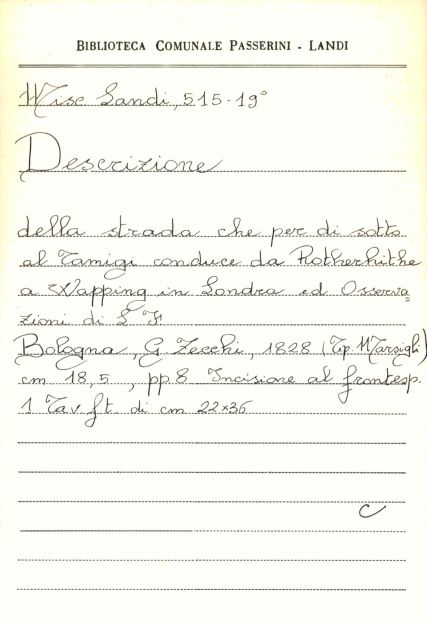 BIBLIOTECA COMUNALE PASSERINI - LANDI
Misc Landi, 515-19°
Descrizione
della strada che per di sotto
al Tamigi conduce da Rotherhithe
a Wapping in Londra ed Osserva=
zioni di L F
Bologna, G. Zecchi, 1828 (Tip. Marsigli)
cm 18,5, pp. 8 Incisione al frontesp.
1 Tav. f.t. di cm 22x36
C